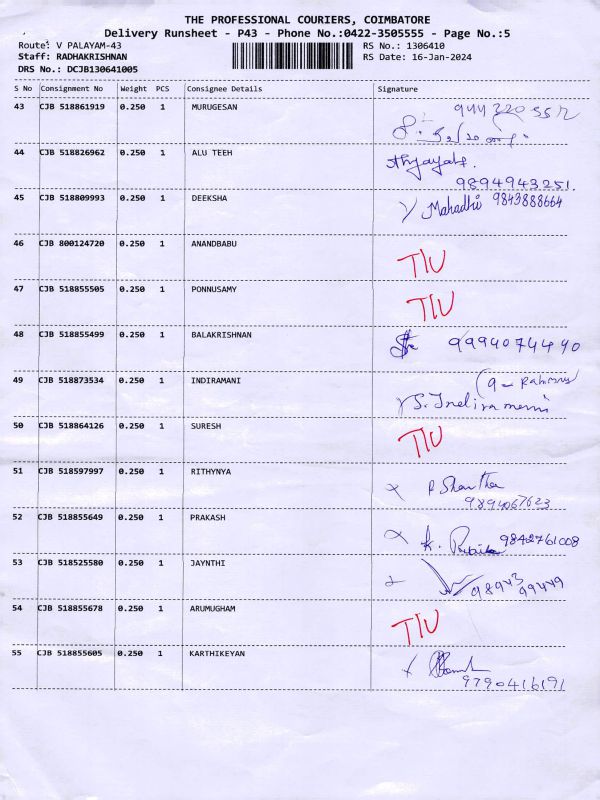 THE PROFESSIONAL COURIERS, COIMBATORE
Delivery Runsheet - P43 - Phone No.:0422-3505555 - Page No.:5
Route: V PALAYAM-43 RS No.: 1306410
Staff: RADHAKRISHNAN RS Date: 16-Jan-2024
DRS No.: DCJB130641005
S No Consignment No Weight PCS Consignee Details Signature
43 CJB 518861919 0.250 1 MURUGESAN
44 CJB 518826962 0.250 1 ALU TEEH
9894943251.
45 CJB 518809993 0.250 1 DEEKSHA Mahadhi 9843888664
46 CJB 800124720 0.250 1 ANANDBABU
T/U
47 CJB 518855505 0.250 1 PONNUSAMY
T/U
48 CJB 518855499 0.250 1 BALAKRISHNAN 9994074490
49 CJB 518873534 0.250 1 INDIRAMANI
50 CJB 518864126 0.250 1 SURESH
T/U
51 CJB 518597997 0.250 1 RITHYNYA
P Shantha
9894067623
52 CJB 518855649 0.250 1 PRAKASH
9842761008
53 CJB 518525580 0.250 1 JAYNTHI
98943
99449
54 CJB 518855678 0.250 1 ARUMUGHAM
T/U
55 CJB 518855605 0.250 1 KARTHIKEYAN
9790416191